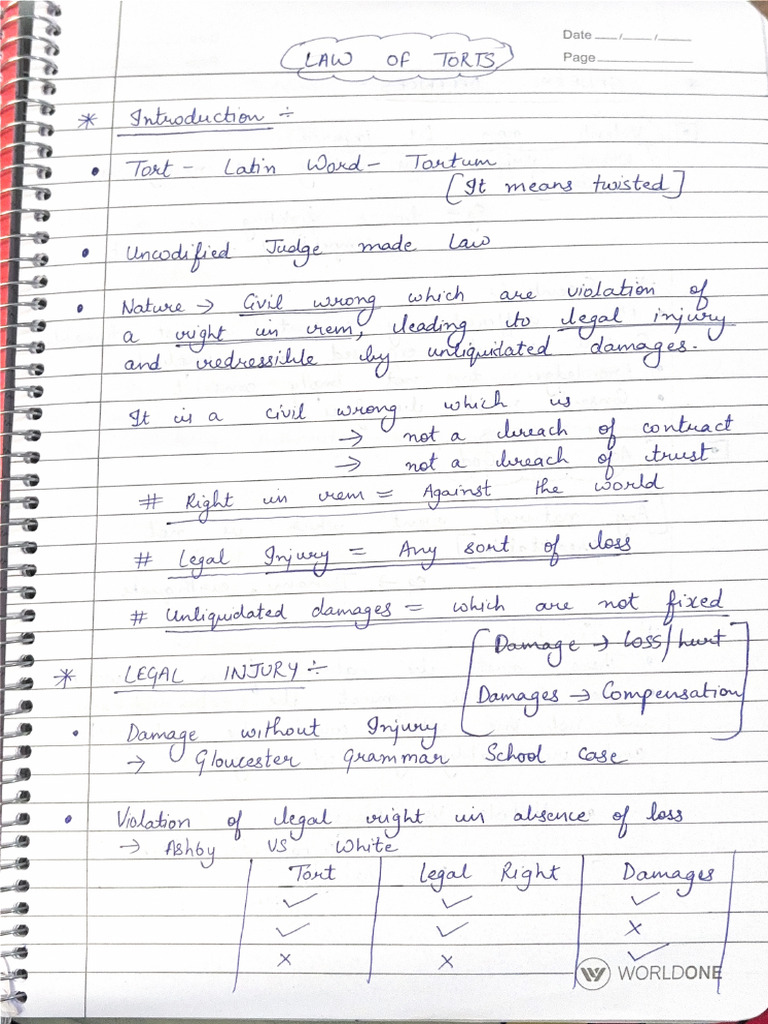 Date __/__/__
Page
LAW OF TORTS
* Introduction ÷
• Tort - Latin Word - Tortum
[It means twisted]
• Uncodified Judge made law
• Nature → Civil wrong which are violation of
a right in rem, leading to legal injury
and redressible by unliquidated damages.
It is a civil wrong which is
→ not a breach of contract
→ not a breach of trust
# Right in rem = Against the world
# Legal Injury = Any sort of loss
# Unliquidated damages = which are not fixed
[Damage → Loss/hurt
Damages → Compensation]
* LEGAL INJURY ÷
• Damage without Injury
→ Gloucester Grammar School Case
• Violation of legal right in absence of loss
→ Ashby VS White
Tort | Legal Right | Damages
✓ | ✓ | ✓
✓ | ✓ | ×
× | × | ✓
WORLDONE